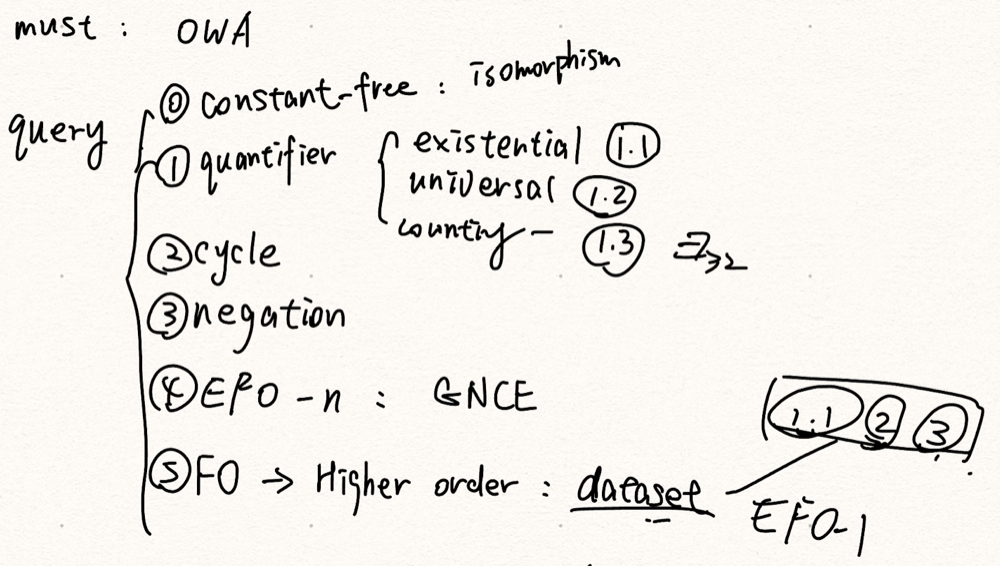 must : OWA
⓪ constant-free : isomorphism
query
① quantifier
existential 1.1
universal 1.2
counting - 1.3 ∃≥2
② cycle
③ negation
④ EFO -n : GNCE
1.1 2 3
⑤ FO → Higher order : dataset
EFO-1